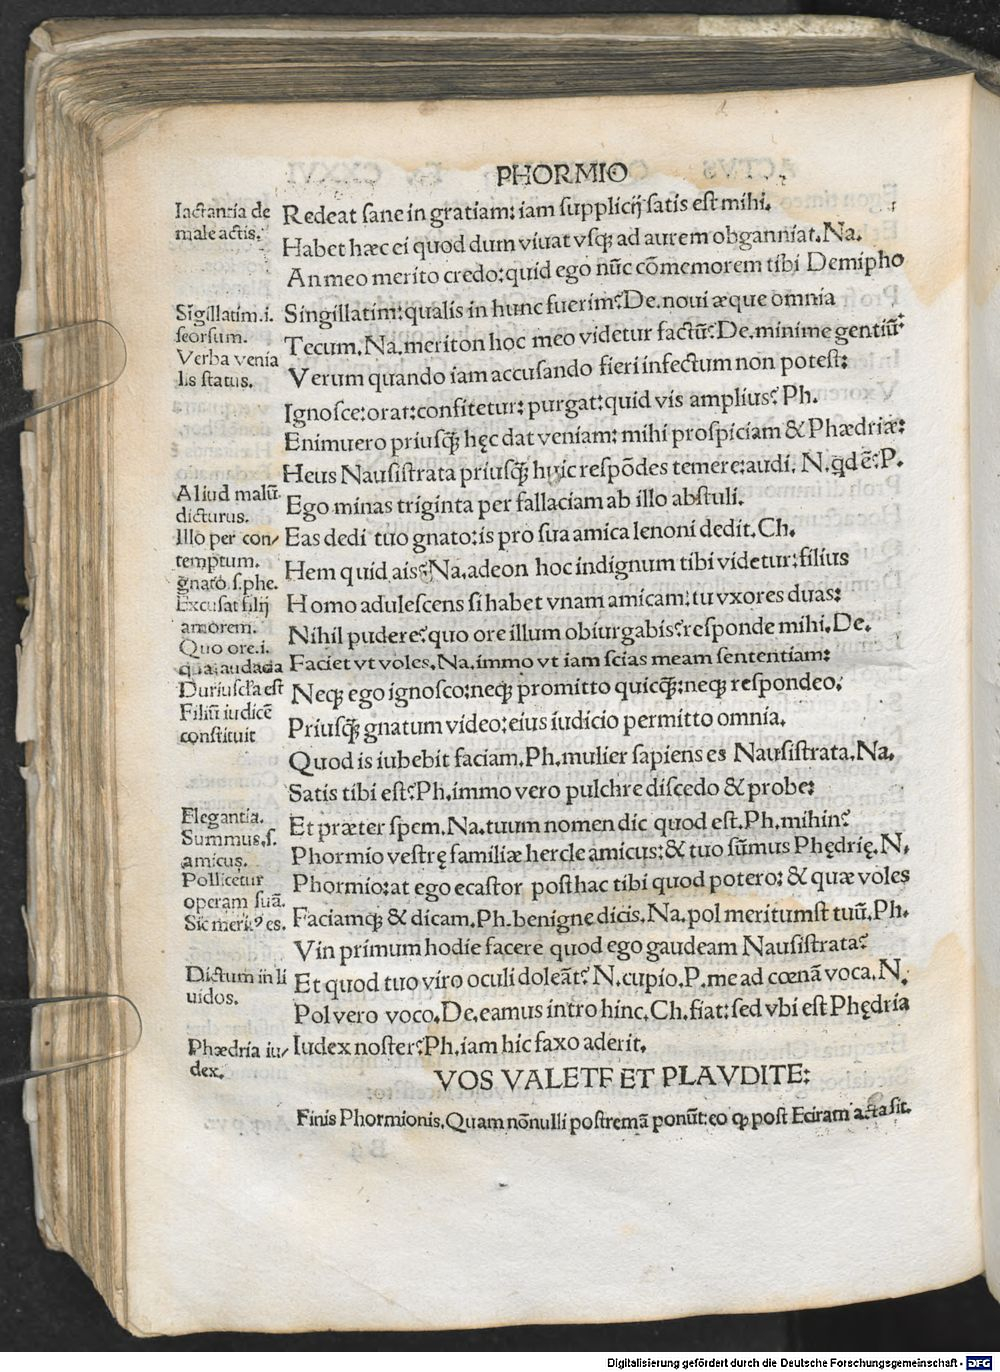 PHORMIO
Iactantia de
male actis.
Redeat sane in gratiam: iam supplicij satis est mihi.
Habet hæc ei quod dum viuat vsq; ad aurem obganniat. Na.
An meo merito credo: quid ego nūc cōmemorem tibi Demipho
Sigillatim .i.
seorsum.
Singillatim: qualis in hunc fuerim? De. noui æque omnia
Verba venia
lis status.
Tecum. Na. meriton hoc meo videtur factū? De. minime gentiū:
Verum quando iam accusando fieri infectum non potest:
Ignosce: orat: confitetur: purgat: quid vis amplius? Ph.
Enimuero priusq̄ hęc dat veniam: mihi prospiciam & Phædriæ:
Heus Nausistrata priusq̄ huic respōdes temere: audi. N. qd ē? P.
Aliud malū
dicturus.
Ego minas triginta per fallaciam ab illo abstuli.
Illo per con/
temptum.
Eas dedi tuo gnato: is pro sua amica lenoni dedit. Ch.
gnato .s. phe.
Hem quid ais? Na. adeon hoc indignum tibi videtur: filius
Excusat filij
amorem.
Homo adulescens si habet vnam amicam: tu vxores duas:
Quo ore .i.
qua audacia
Nihil pudere? quo ore illum obiurgabis? responde mihi. De.
Faciet vt voles. Na. immo vt iam scias meam sententiam:
Duriuscĺa est
Filiū iudicē
constituit
Neq; ego ignosco: neq; promitto quicq̄: neq; respondeo:
Priusq̄ gnatum video: eius iudicio permitto omnia.
Quod is iubebit faciam. Ph. mulier sapiens es Nausistrata. Na.
Satis tibi est? Ph. immo vero pulchre discedo & probe:
Elegantia.
Et præter spem. Na. tuum nomen dic quod est. Ph. mihin?
Summus .s.
amicus.
Phormio vestrę familiæ hercle amicus: & tuo sūmus Phędrię. N.
Pollicetur
operam suā.
Phormio: at ego ecastor posthac tibi quod potero: & quæ voles
Sic merit⁹ es.
Faciamq; & dicam. Ph. benigne dicis. Na. pol meritumst tuū. Ph.
Vin primum hodie facere quod ego gaudeam Nausistrata?
Dictum in li
uidos.
Et quod tuo viro oculi doleāt? N. cupio. P. me ad cœnā voca. N.
Pol vero voco. De. eamus intro hinc. Ch. fiat: sed vbi est Phędria
Phædria iu/
dex.
Iudex noster? Ph. iam hic faxo aderit.
VOS VALETE ET PLAVDITE:
Finis Phormionis. Quam nōnulli postremā ponūt: eo ꝙ post Eciram acta sit.
Digitalisierung gefördert durch die Deutsche Forschungsgemeinschaft - DFG